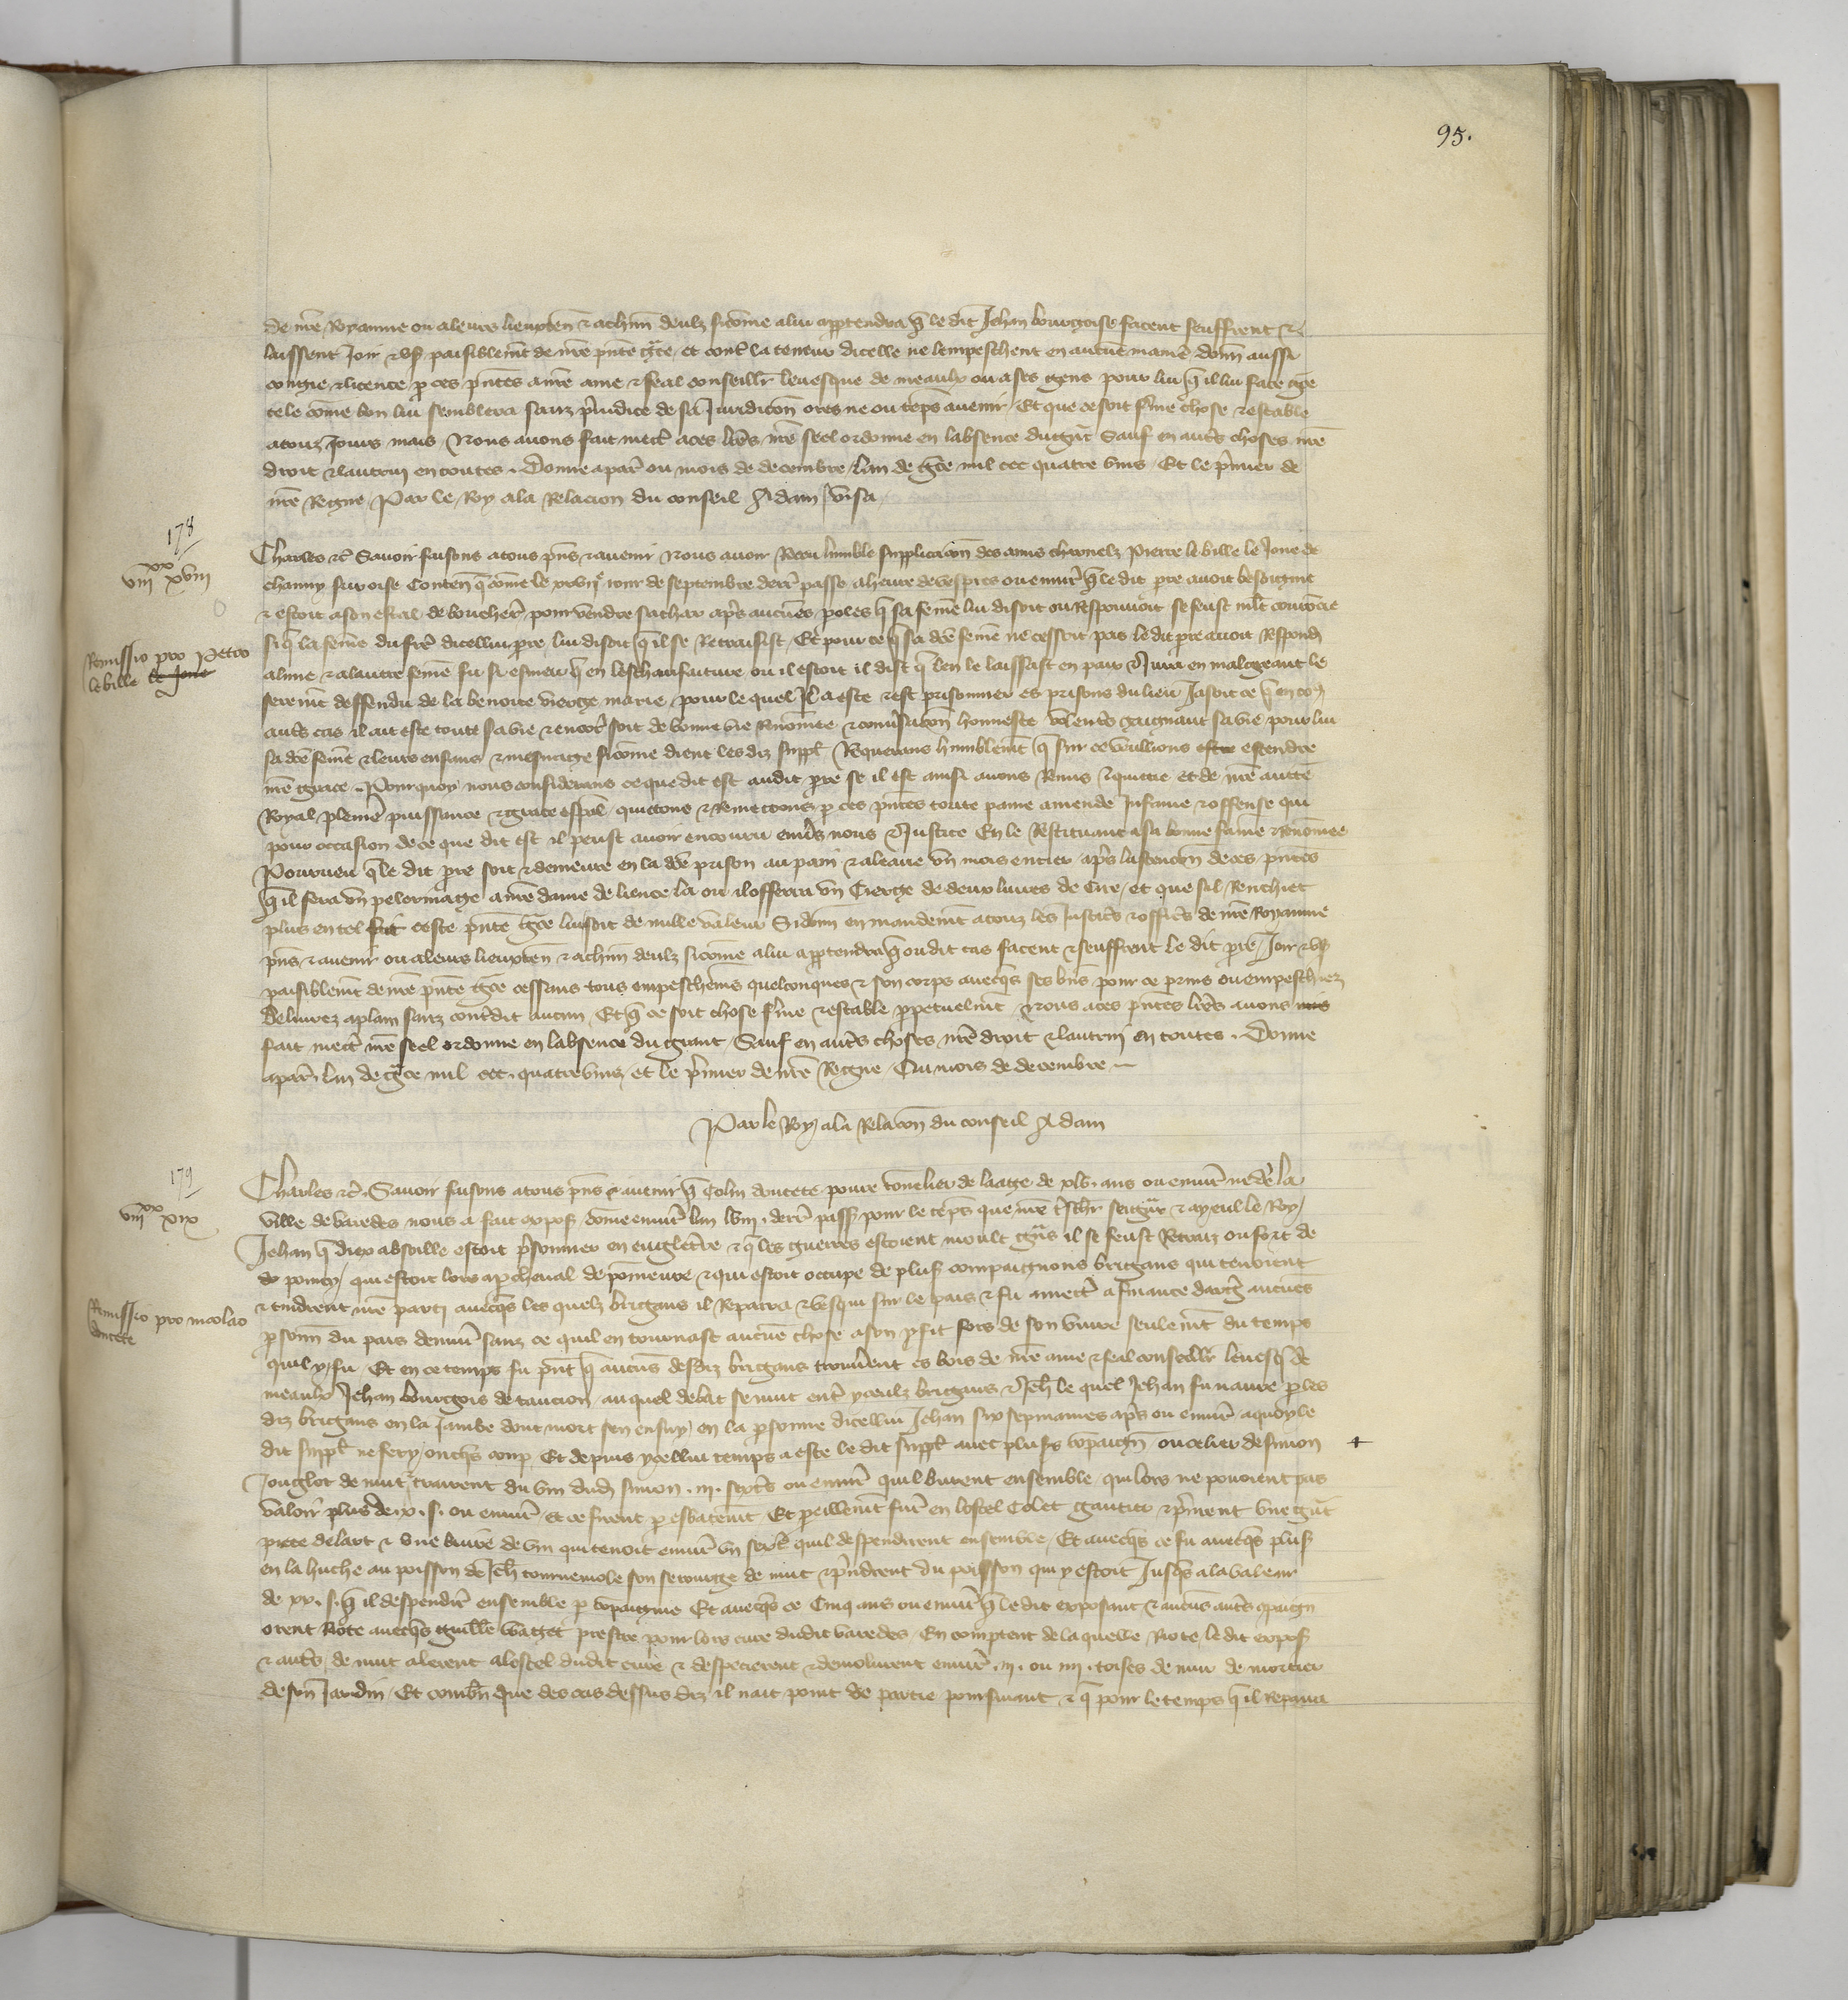 95.
de nre Royaume ou a leurs lieuxten et a chun deulz sicome a lui appartendra que le dit Jehan bourgoise facent seuffrent et
laissent Joir et us paisiblemt de nre pnte gce et contre la teneur dicelle ne lempeschent en aucune maniere donn aussi
congie et licence p ces pntes a nre ame et feal conseillr levesque de meaulx ou a ses gens pour lui que il lui face gce
tele come bon lui semblera sanz preiudice de sa Juridicon ores ne ou temps avenir Et que ce soit ferme chose et estable
a touz Jours mais Nous avons fait mectre a ces lres nre seel ordonne en labsence du grant Sauf en autres choses nre
droit et lautruy en toutes. Donne a par ou mois de decembre lan de gce mil ccc quatre vins Et le premier de
nre Regne Par le Roy a la Relacion du conseil Adam Visa
178
viii xx xviii
Charles etc Savoir faisons a tous pns et avenir Nous avoir Receu humble supplicacion des amis charnelz Pierre le bille le Jone de
chauny sur oise Conten que come le xxviije jour de septembre derr passe a heure de vespres ou environ que le dit pre avoit besoigne
et estoit a son estal de boucherie pour vendre sa char apres aucunes paroles que sa feme lui disoit ou Respondoit se feust mlt courrocie
si que la feme du frere dicellui pre lui disoit que il se Retraisist Et pour ce que sa dce feme ne cessoit pas le dit pre avoit Respond
Remissio pro Petro
le bille le Jone
a lune et a lautre feme fu si esmeu que en leschaufaiture ou il estoit il dist que len le laissast en paix et Jura en malgreant le
seremt deffendu de la benoite vierge marie pour le quel Il a este et est prisonnier es prisons du lieu Jasoit ce que en touz
autres cas il ait este toute sa vie et encore soit de bonne vie Renomee et conversacion honneste voulentiers gaignant sa vie pour lui
sa dce feme et leurs enfans et mesnage sicome dient lesdiz suppl Requerans humblemt que sur ce vueillions estre estendre
nre grace. Pourquoy nous considerans ce que dit est audit pre se il est ainsi avons Remis et quictie et de nre aucte
Royal pleine puissance et grace espal quictons et Remectons p ces pntes toute paine amende Infame et offense qui
pour occasion de ce que dit est il peust avoir encouru envers nous et Justice En le Restituant a sa bonne fame et Renomee
Pourveu que le dit pre soit et demeure en la dce prison au pain et a leaue un mois entier apres lastencion de ces pntes
que il fera un pelerinage a nre dame de lience la ou il offerra un Cierge de deux livres de Cire, et que sil Renchiet
plus en tel fait ceste pnte gce lui soit de nulle valeur Si donn en mandemt a touz les Justiciers et officiers de nre Royaume
pns et avenir ou a leurs lieuxten et a chun deulz sicome a lui appartendra que ou dit cas facent et seuffrent le dit pre Joir et us
paisiblemt de nre pnte gce cessans tous empeschemens quelconques et son corps avecques ses biens pour ce prins ou empeschiez
delivrez a plain sanz contredit aucun Et que ce soit chose ferme et estable perpetuelmt Nous a ces pntes lres avons mis
fait mectre nre seel ordonne en labsence du grant Sauf en autres choses nre droit et lautruy en toutes. Donne
a par. lan de gce mil ccc. quatrevins et le premier de nre Regne Ou mois de decembre
Par le Roy a la Relacion du conseil Adam
179
viii xx xix
Charles etc. Savoir faisons a tous pns et avenir que Colin doucete povre tonelier de laage de xlv. ans ou environ ne de la
ville de varedes nous a fait expos come environ lan lviii. derr pass pour le temps que nre treschr seigr et ayeul le Roy
Jehan que diex absoille estoit prisonnier en engleterre et que les guerres estoient moult grans il se feust Retraiz ou fort de
de poincy qui estoit lors et qui estoit occupe de pluss compaignons brigans qui tenoient
Remissio pro nicolao
doucete
et tindrent nre parti avecques les quelz brigans il Repaira et vesqui sur le pais et fu a mectre a finance dargent aucunes
personn du pais denviron sanz ce quil en tournast aucune chose a son profit fors de son vivre seulemt du temps
quil y fu Et en ce temps fu pnt que aucuns desdiz brigans trouverent es bois de nre ame et feal conseiller levesque de
meaulx Jehan bourgois de taucion auquel debat se mut entre yceulz brigans et Jeh le quel Jehan fu navre p les
diz brigans en la Jambe dont mort sen ensuy en la personne dicellui Jehan six sepmaines apres ou environ a quoy le
dit suppl ne fery onques coup Et depuis ycellui temps a este le dit suppl avec pluss compaign ou celier de simon +
Jouglot de nuit et trairent du vin dud simon. iii. sextiers ou environ quil burent ensemble qui lors ne povoient pas
valoir plus de ix. s. ou environ et ce firent p esbatemt Et pareillemt furent en lostel Colet gautier et prirent une grant
piece de lart et une buire de vin qui tenoit environ un sextier quil despendirent ensemble Et avecques ce fu avecques pluss
en la huche au poisson de Jeh tournemole son serourge de nuit et prindrent du poisson qui y estoit Jusques a la valeur
de xx. s. que il despendirent ensemble p compaignie Et avecques ce Cinq ans ou environ que le dit exposant et aucuns autres compaign
orent Riote avecques guille watget prestre pour lors cure dudit varedes En comptent de la quelle Riote le dit expos
et autres de nuit alerent a lostel dudit cure et despecierent et demolirent environ. iii. ou iiii. toises de mur de mortier
de son Jardin Et combn que des cas dessus diz il nait point de partie poursuiant et que pour le temps que il Repaira